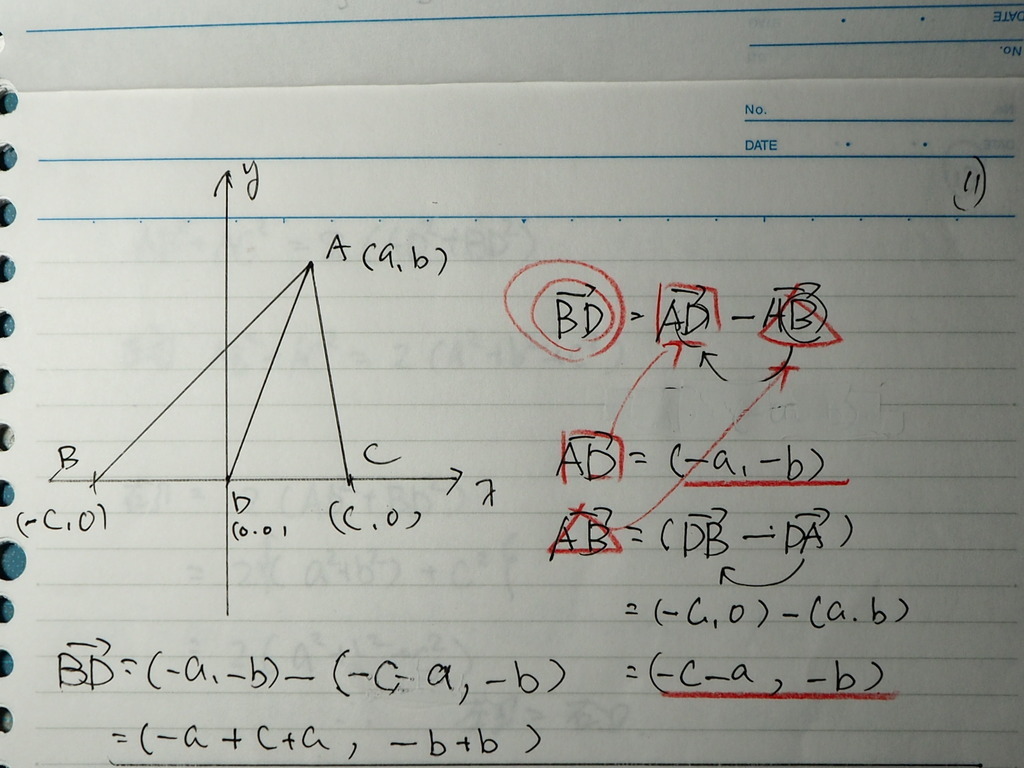 DATE
No.
No.
DATE
(1)
y
A (a,b)
B
C
D
x
(-C,0)
(0.0)
(C,0)
BD = AD - AB
AD = (-a, -b)
AB = (DB - DA)
= (-C,0) - (a.b)
= (-C-a, -b)
BD = (-a,-b) - (-C-a, -b)
= (-a + C + a, -b + b)